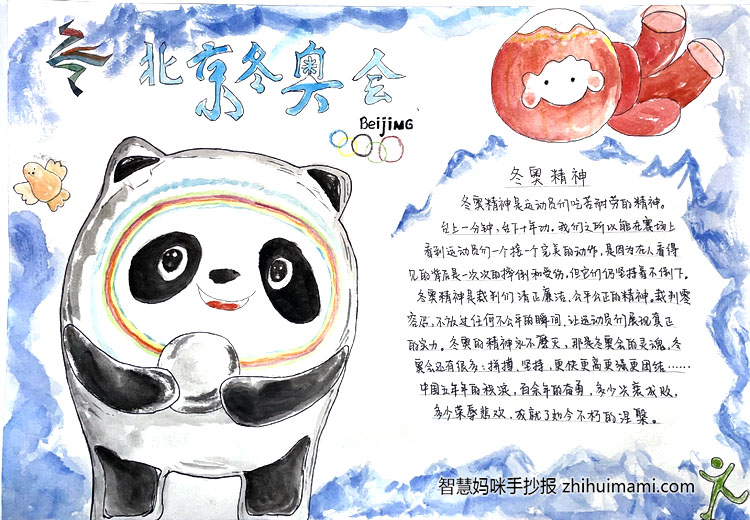 北京冬奥会
BeijiNG
冬奥精神
冬奥精神是运动员们吃苦耐劳的精神。
台上一分钟,台下十年功。我们之所以能在赛场上
看到运动员们一个接一个完美的动作,是因为在人看得
见的背后是一次次的摔倒和受伤,但它们仍坚持着不倒下。
冬奥精神是裁判们清正廉洁、公平公正的精神。裁判零
容忍,不放过任何不公平的瞬间,让运动员们展现真正
的实力。冬奥的精神永不磨灭,那是冬奥会的灵魂。冬
奥会还有很多:拼搏、坚持、更快更高更强更团结……
中国五年年的秋浪,百余年的奋勇,多少次衰成败,
多少荣辱悲欢,成就了如今不朽的涅槃。
智慧妈咪手抄报 zhihuimami.com